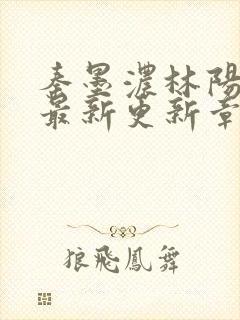 秦墨濃林陽
最新更新章
狼飛鳳舞